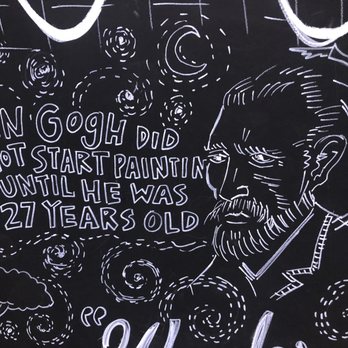 N GOGH DID
OT START PAINTIN
UNTIL HE WAS
27 YEARS OLD
"